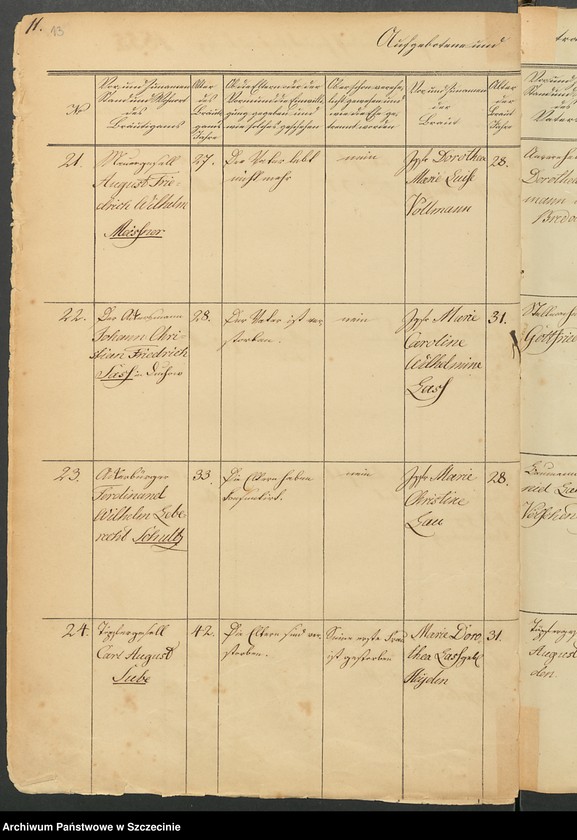 11. 13
Aufgebotene und
No
Vor und Zunamen
Stand und Wohnort
des
Bräutigams
Alter
des
Bräuti
gams
Jahre
Ob die Eltern oder der
Vormund die Einwilli
gung gegeben und
wie solches geschehen
Ob er schon verehe
licht gewesen und
wie die Ehe ge
trennt worden
Vor und Zunamen
der
Braut
Alter
der
Braut
Jahre
21.
August Frie-
drich Wilhelm
Meissner
27.
Der Vater lebt
nicht mehr
nein
Jgfr Dorothea
Marie Luise
Vollmann
28.
22.
Der Ackersmann
Johann Chri-
stian Friedrich
Sass in
28.
Der Vater ist ver
storben.
nein
Jgfr Marie
Caroline
Wilhelmine
Lass
31.
23.
Ackerbürger
Ferdinand
Wilhelm Lebe
recht Schultz
33.
Die Eltern haben
consentirt.
nein
Jgfr Marie
Christine
Lau
28.
24.
Carl August
Lübe
42.
Die Eltern sind ver
storben.
Seine erste Frau
ist gestorben
Marie Doro
thea Lass geb.
Heyden
31.
Vor und
Stand und
des
Vaters
Dorothea
mann
Gottfried
August
den.
Archiwum Państwowe w Szczecinie